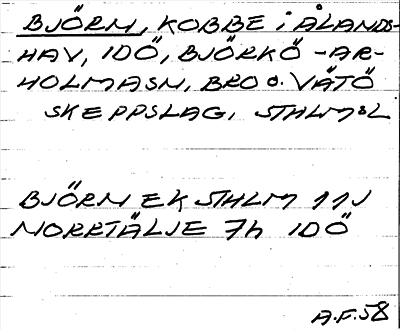 BJÖRN, KOBBE i ÅLANDS-
HAV, IDÖ, BJÖRKÖ-AR-
HOLMASN, BRO o. VÄTÖ
SKEPPSLAG, STHLMSL
BJÖRN EK STHLM 11J
NORRTÄLJE 7h IDÖ
A.F.58